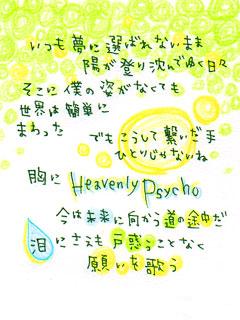 いつも夢に選ばれないまま
陽が登り沈んでゆく日々
そこに僕の姿がなくても
世界は簡単に
まわった
でもこうして繋いだ手
ひとりじゃないね
胸に Heavenly Psycho
今は未来に向かう道の途中だ
涙にさえも戸惑うことなく
願いを歌う